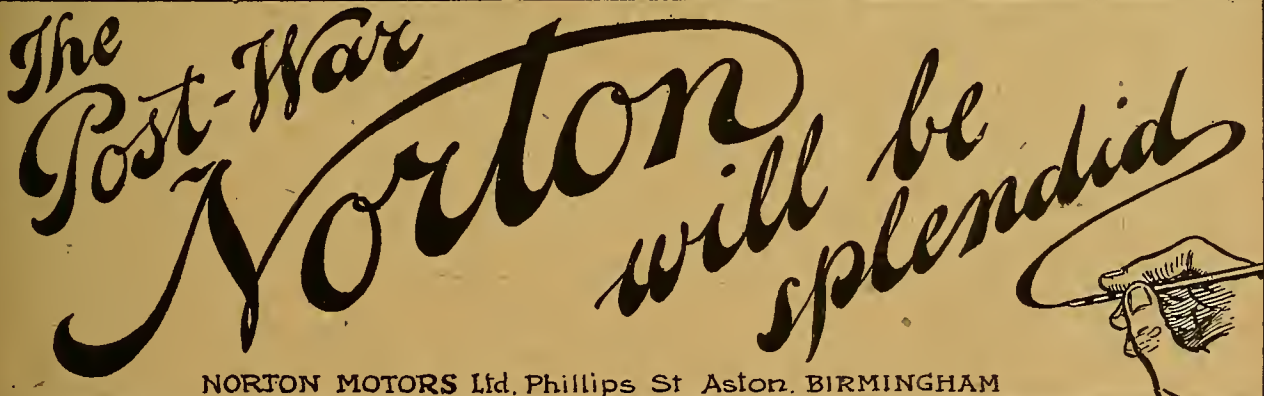 The
Post-War
Norton
will be
splendid
NORTON MOTORS Ltd, Phillips St Aston. BIRMINGHAM